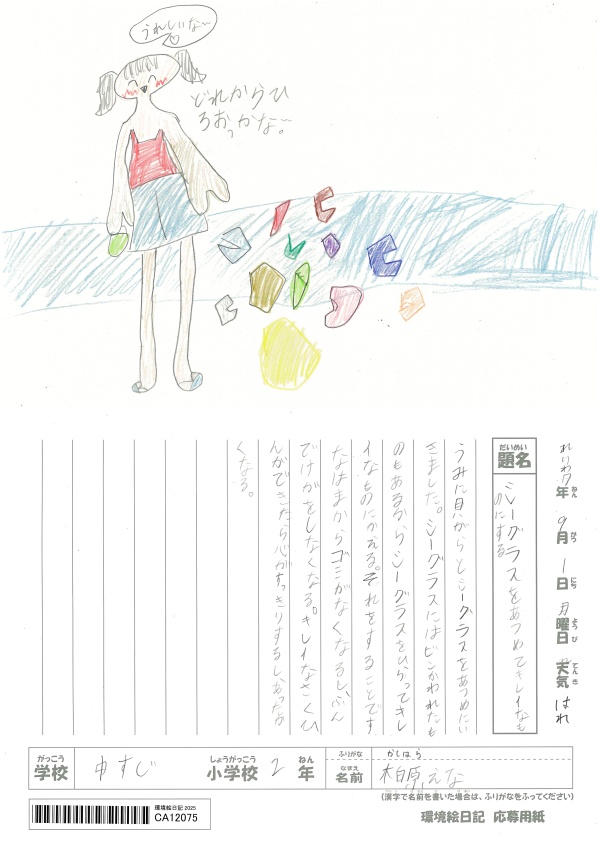 うれしいな〜
どれからひ
ろおっかな〜。
れいわ7年 9月 1日 月曜日 天気 はれ
ねん がつ にち ようび てんき
だいめい
題名
シーグラスをあつめてキレイなも
のにする
うみに貝がらとシーグラスをあつめにい
きました。シーグラスにはビンがわれたも
のもあるからシーグラスをひらってキレ
イなものにかえる。それをすることです
なはまからゴミがなくなるし、ぶん
でけがをしなくなる。キレイなさくひ
んができたら心がすっきりするし、あったか
くなる。
がっこう しょうがっこう ねん
学校 中すじ 小学校 2 年
ふりがな かしはら
なまえ
名前 柏原 えな
(漢字で名前を書いた場合は、ふりがなをふってください)
環境絵日記 2025
CA12075
環境絵日記 応募用紙